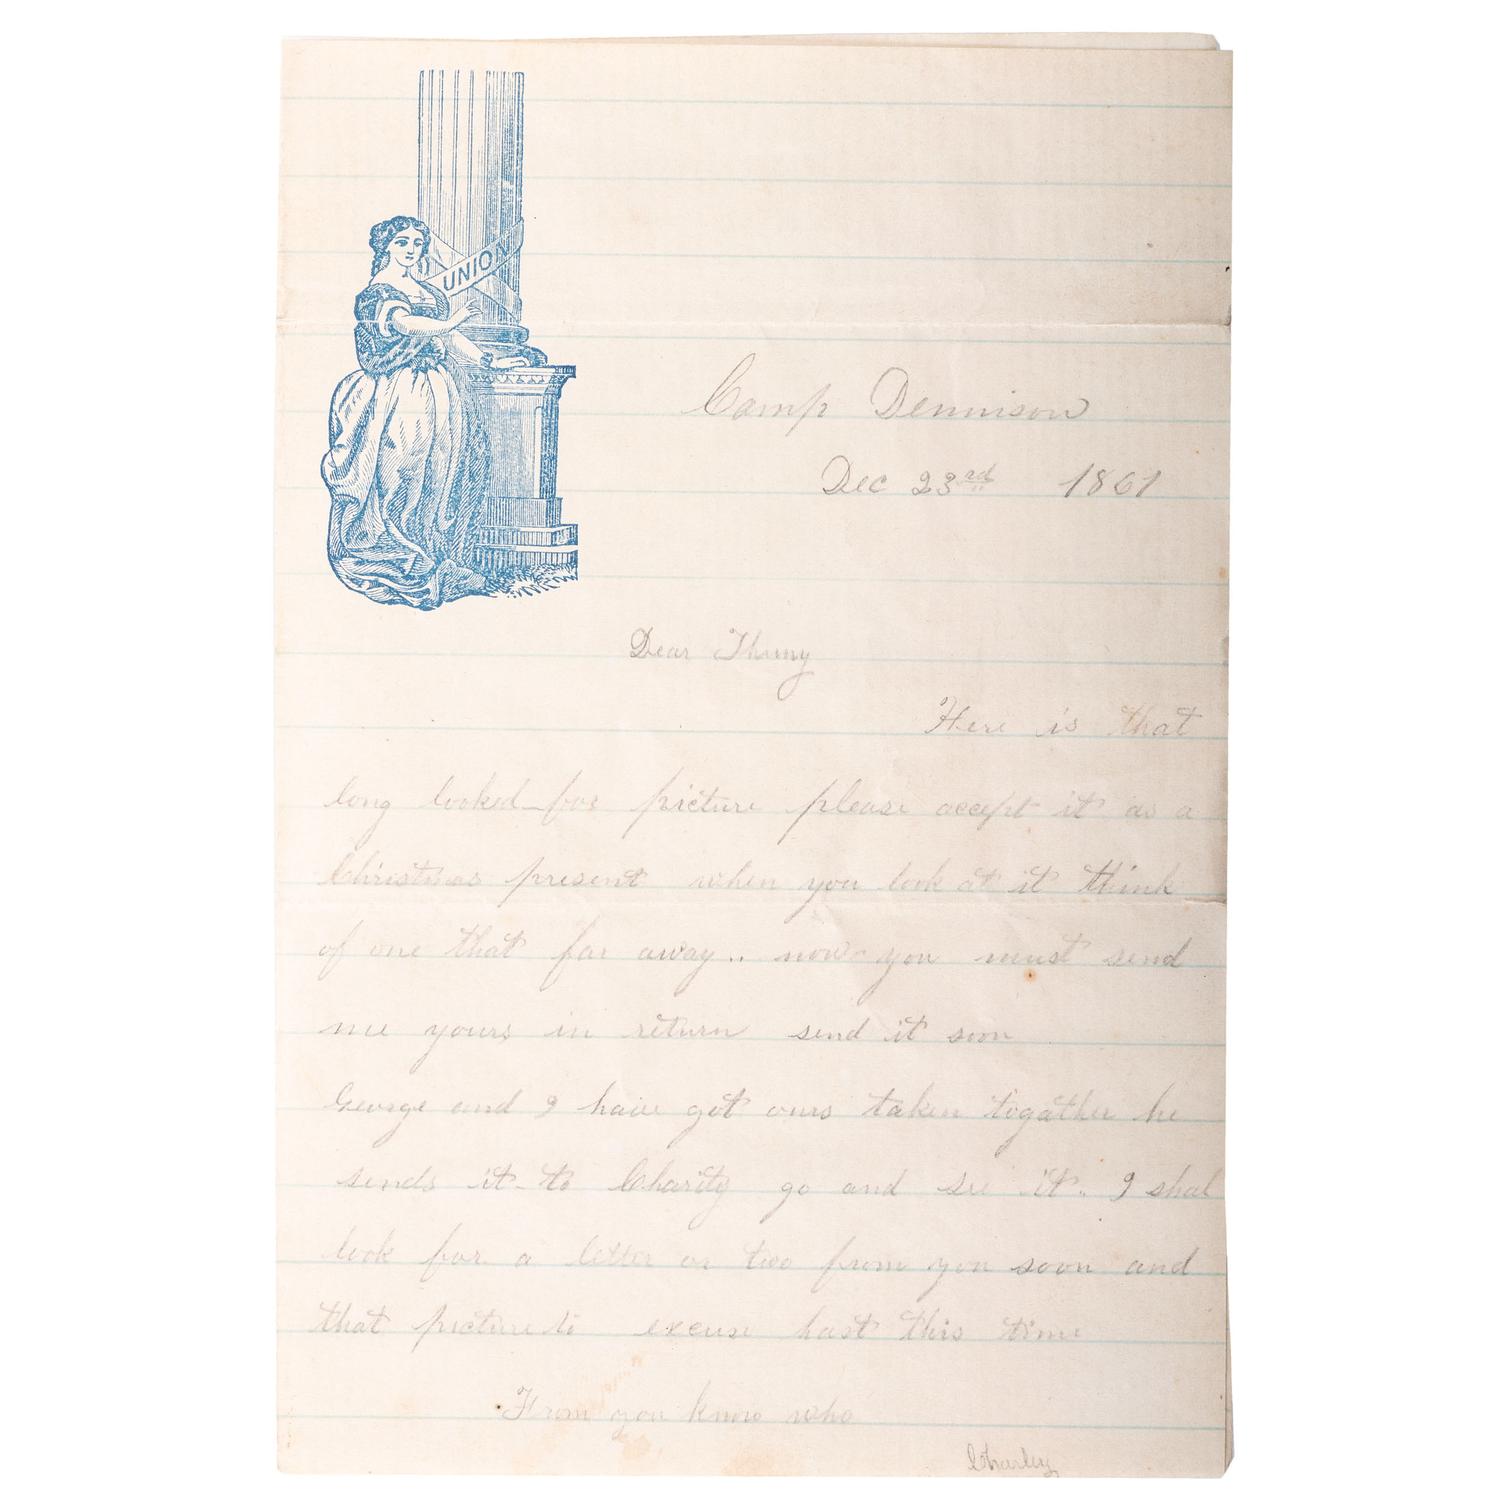 UNION
Camp Dennison
Dec 23rd 1861
Dear Thuny
Here is that
long looked-for picture please accept it as a
Christmas present when you look at it think
of one that far away.. now you must send
me yours in return send it soon
George and I have got ours taken togather he
sends it to Charity go and see it. I shal
look for a letter or two from you soon and
that picture to excuse hast this time
From you know who
Charley